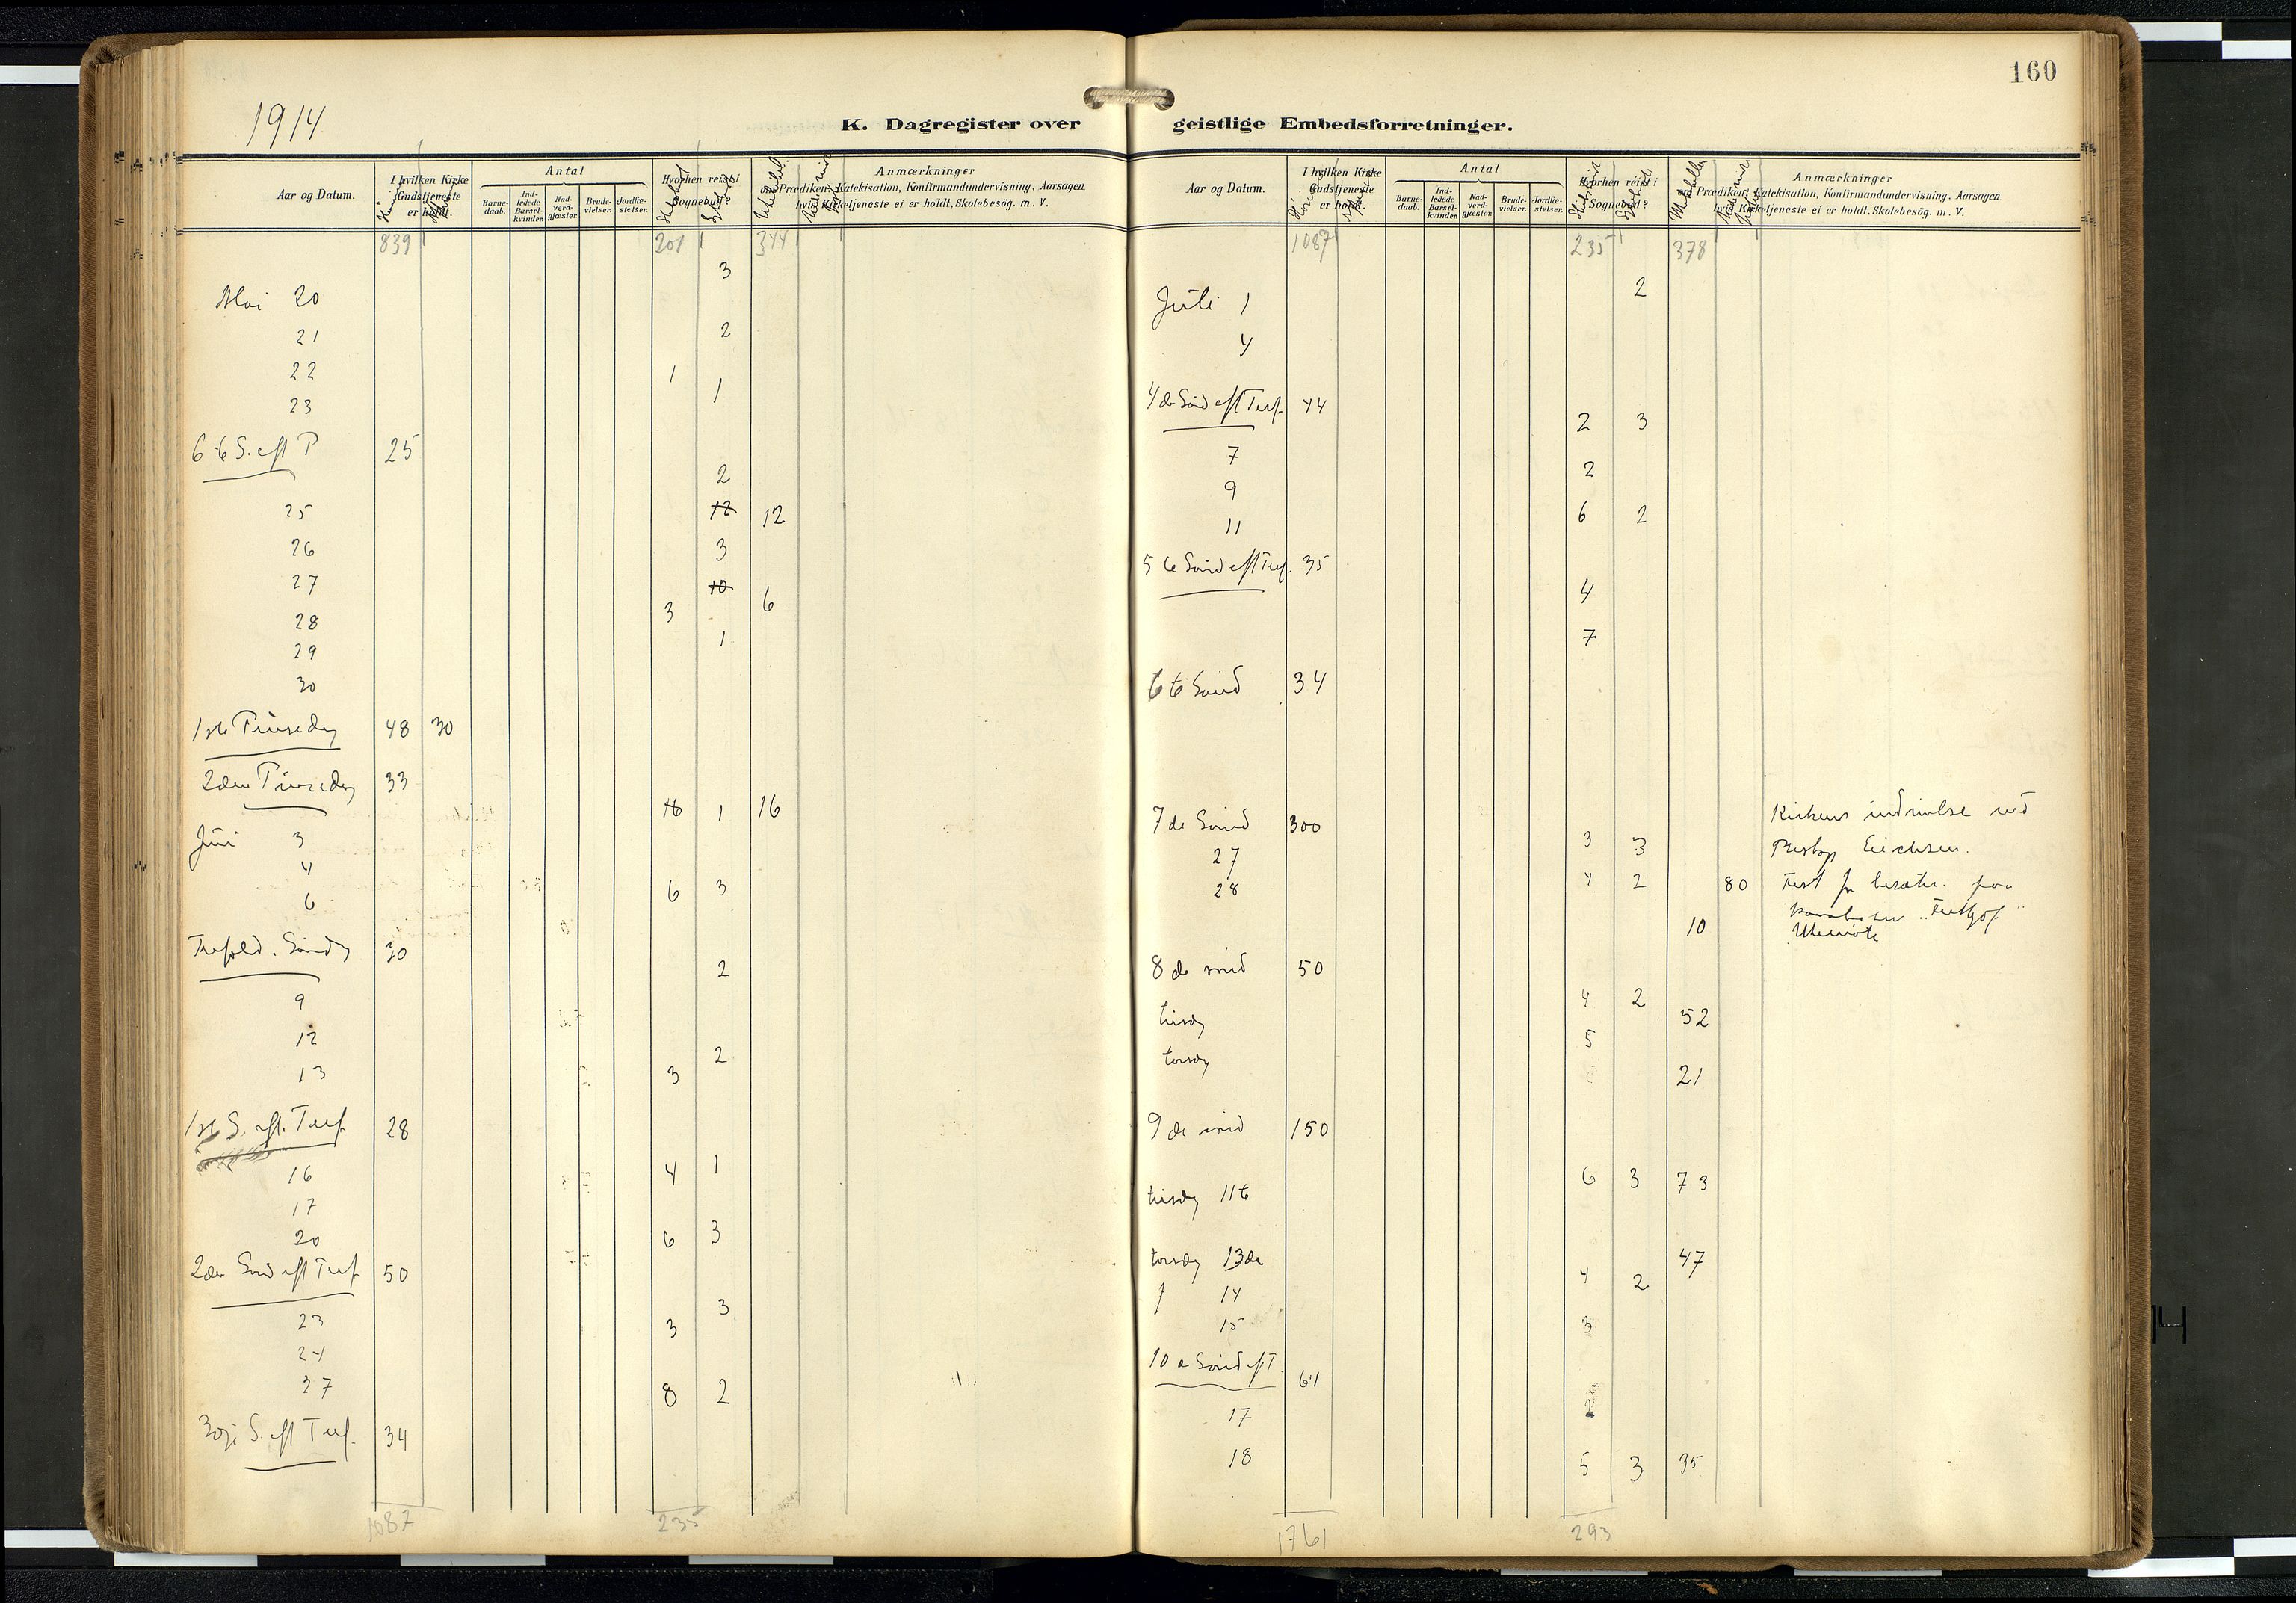 160
1914
K. Dagregister over geistlige Embedsforretninger.
Aar og Datum.
I hvilken Kirke Gudstjeneste er holdt.
Antal
Barne-daab.
Ind-ledede Barsel-kvinder.
Nad-verd-gjæster.
Brude-vielser.
Jordfæ-stelser.
Hvorhen reist i Sognebud?
Anmærkninger
om Prædiken, Katekisation, Konfirmandundervisning, Aarsagen
hvis Kirketjeneste ei er holdt, Skolebesög. m. V.
839 201 344
3
Mai 20
21 2
22 1
23 1
6te S. eft P 25
2
25 12 12
26 3
27 10
3 6
28
29 1
30
1ste Pinsedag 48 30
2den Pinsedag 33
16 1 16
Juni 3
4
6 6 3
Trefold. Søndag 30
2
9
12
13 3 2
1ste S. eft. Tref. 28
16 4 1
17
20 6 3
2den Sønd eft Tref. 50
23 3 3
24
27 8 2
3dje S. eft Tref. 34
1087 235
Aar og Datum.
I hvilken Kirke Gudstjeneste er holdt.
Antal
Barne-daab.
Ind-ledede Barsel-kvinder.
Nad-verd-gjæster.
Brude-vielser.
Jordfæ-stelser.
Hvorhen reist i Sognebud?
Anmærkninger
om Prædiken, Katekisation, Konfirmandundervisning, Aarsagen
hvis Kirketjeneste ei er holdt, Skolebesög. m. V.
1087 235 378
2
Juli 1
4
4de Sønd eft Tref. 44
2 3
7
2
9
11 6 2
5te Sønd eft Tref. 35
4
7
6te Sønd 34
7de Sønd 300 Kirkens indvielse ved
27 3 3 Biskop Erichsen.
28 4 2 80 Fest for
10
8de sønd 50
4 2
tirsdag 52
5
torsdag
21
9de sønd 150
6 3 73
tirsdag 11te
torsdag 13de 47
4 2
14
15 3
10e Sønd eft T. 61
2
17
18 5 3 35
1761 293